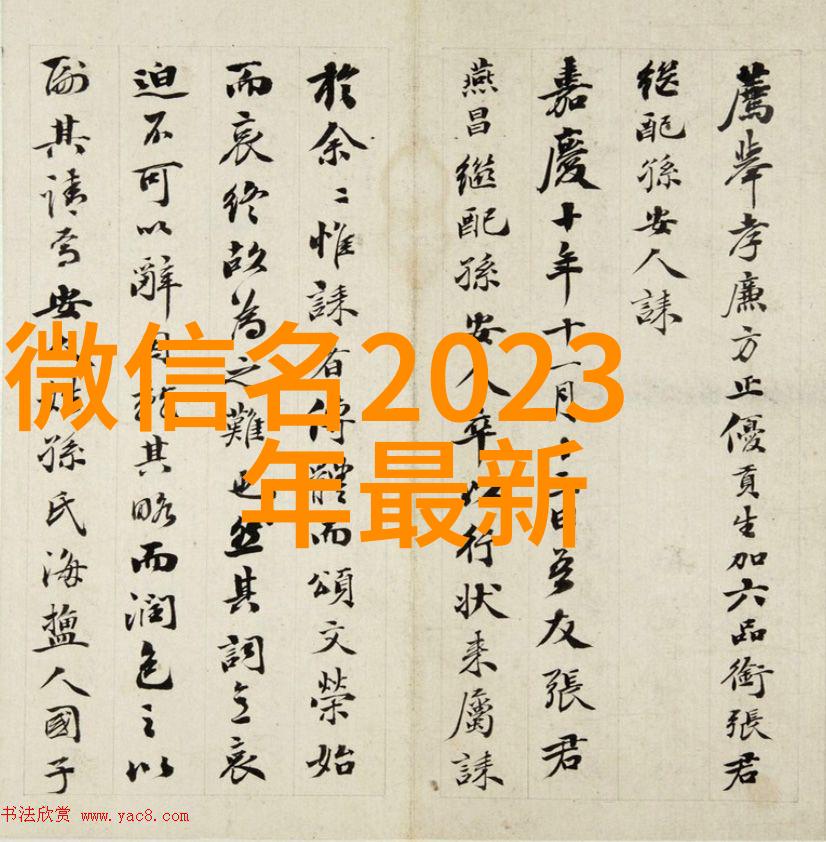 薦舉孝廉方正優貢生加六品銜張君
継配孫安人誄
嘉慶十年十一月十二日吾友張君
燕昌繼配孫安人卒以行状来屬誄
於余〻惟誄者傳體而頌文榮始
而哀終故為之難也然其詞立哀
迫不可以辭其略而潤色之以
副其請焉安孫氏海鹽人國子
微信名2023
年最新
书法欣赏 www.yac8.com